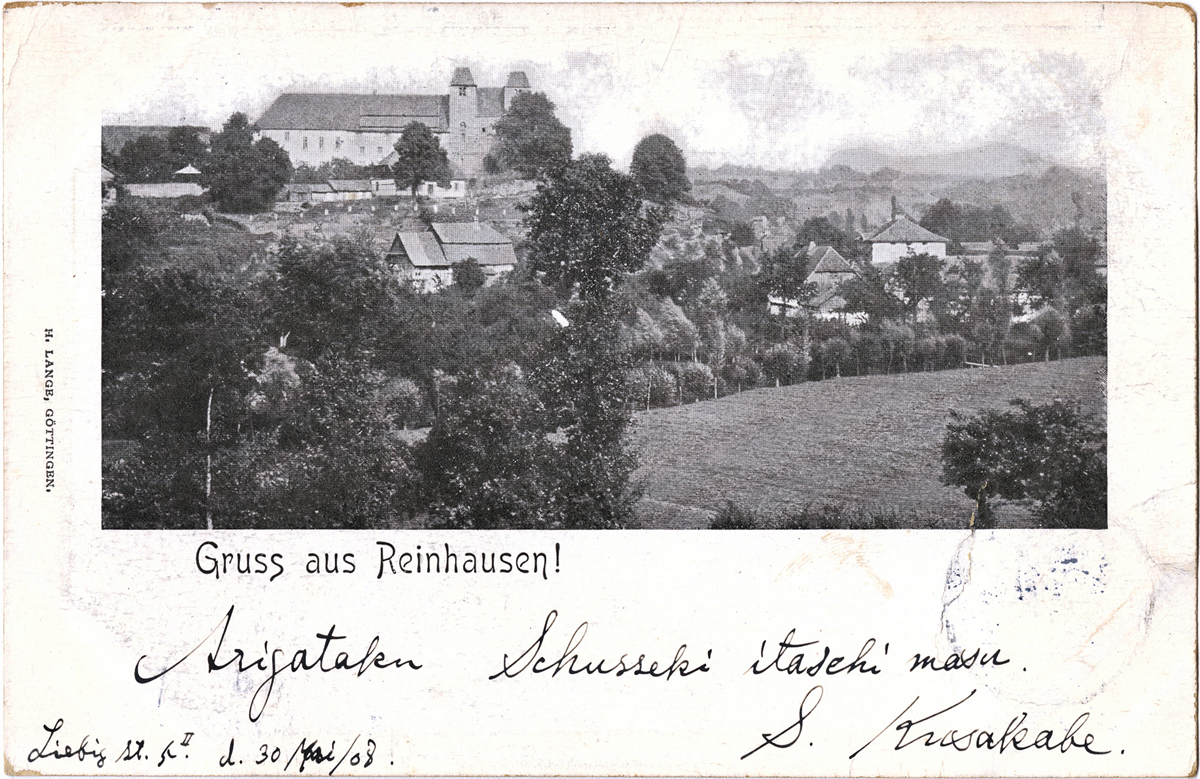 H. LANGE, GÖTTINGEN.
Gruss aus Reinhausen!
Arigataku Schusseki itaschi masu.
S. Kusakabe.
Liebig st. 5 II. d. 30/ /08.